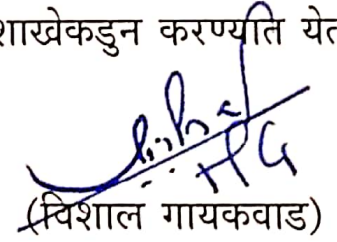 शाखेकडुन करण्याति येत
(विशाल गायकवाड)